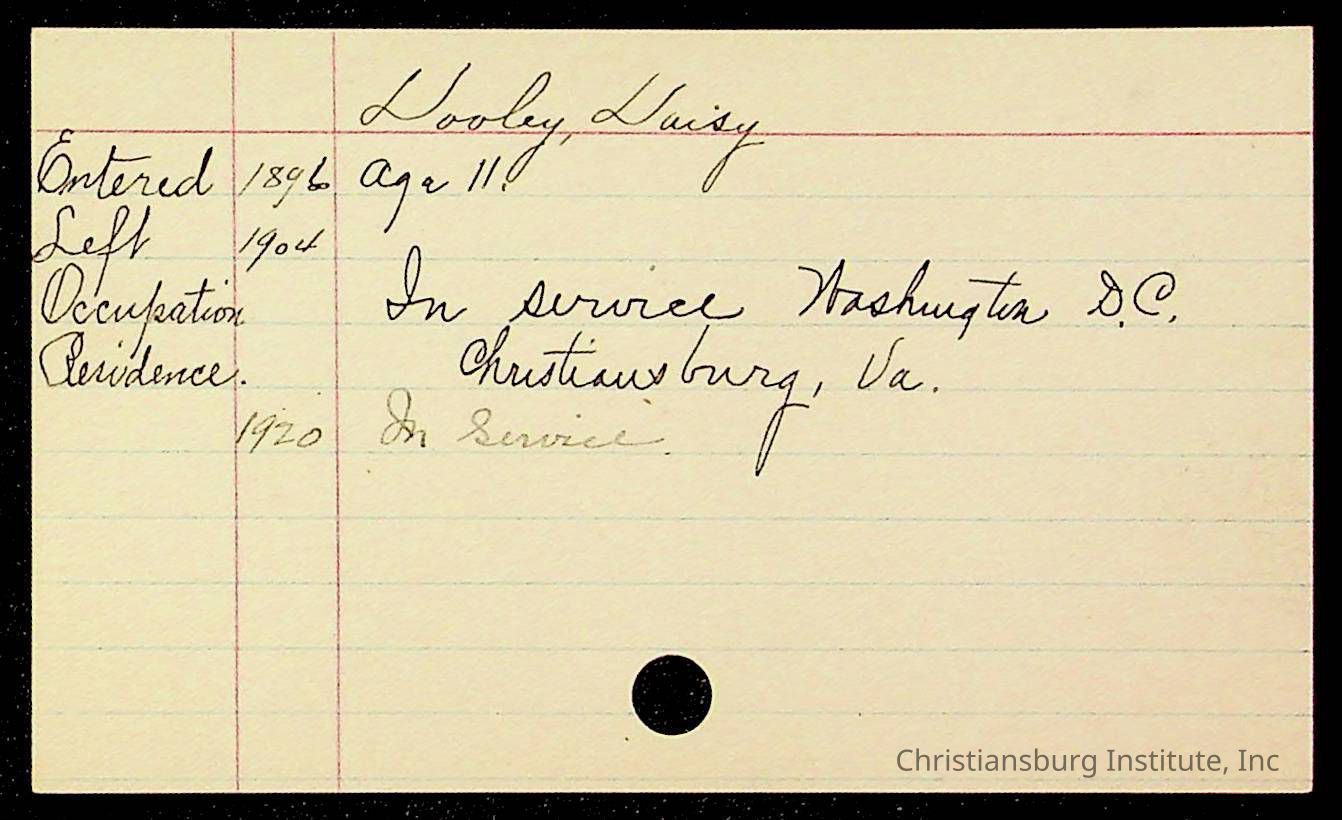 Dooley, Daisy
Entered 1896 Age 11.
Left 1904
Occupation In service Washington D.C.
Residence. Christiansburg, Va.
1920 In Service.
Christiansburg Institute, Inc